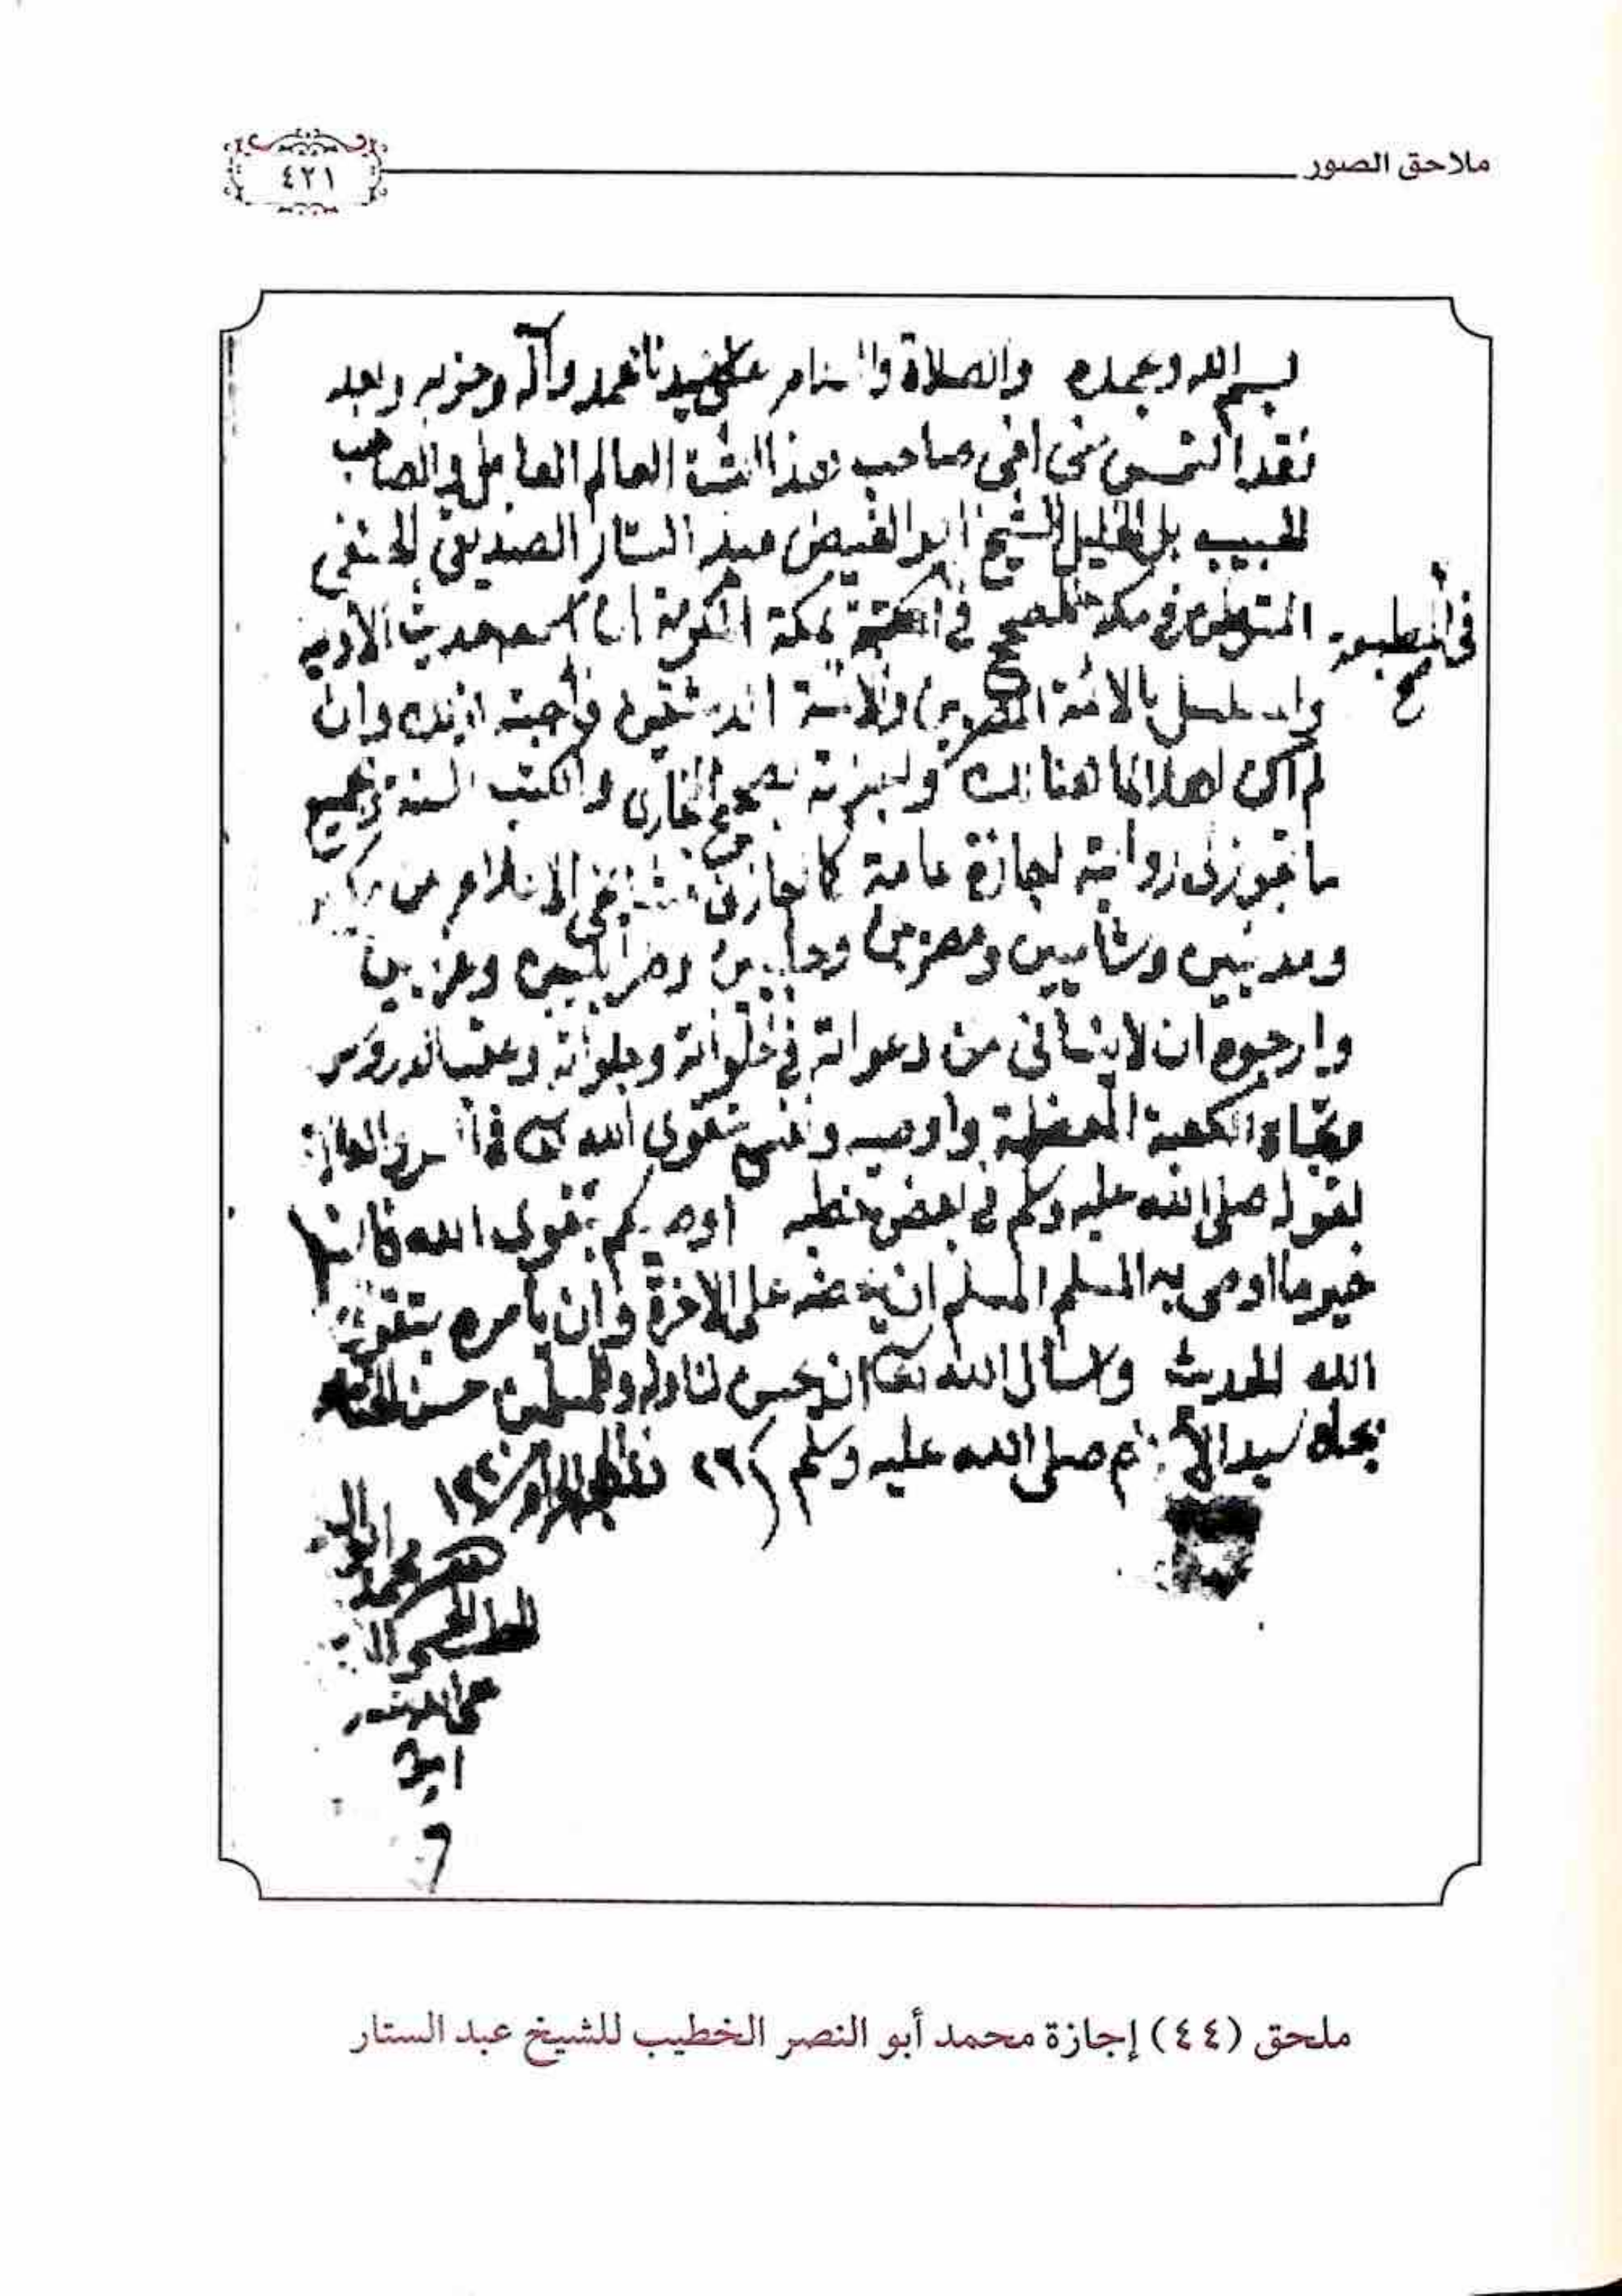 ملاحق الصور
٤٢١
بسم الله وبحمده والصلاة والسلام على سيدنا محمد وآله وحزبه وبعد
فقد التمس مني اخي صاحب هذا الثبت العالم العامل والصاحب
الحبيب بل الخليل الشيخ ابو الفيض عبد الستار الصديقي الحنفي
المتوطن في مكة المصحح في المكتبة بمكة المكرمة ان اسمعه حديث الاولية
في المطبعة صح
والمسلسل بالائمة المصريين والائمة الدمشقيين فأجبته لذلك وان
لم اكن اهلا لما هنالك واجزته بصحيح البخاري والكتب الستة وبجميع
ما تجوز لي روايته اجازة عامة كما اجازني مشايخي الاعلام من مكيين
ومدنيين وشاميين ومصريين وحلبيين وطرابلسيين وغربيين
وارجوه ان لا ينساني من دعواته في خلواته وجلواته وعقب الدروس
وتجاه الكعبة المعظمة واوصيه ونفسي بتقوى الله تعالى في السر والعلانية
لقوله صلى الله عليه وسلم في بعض خطبه اوصيكم بتقوى الله فانها
خير ما اوصى به المسلم المسلم ان يحضه على الاخرة وان يأمره بتقوى
الله الحديث واسأل الله تعالى ان يحسن لنا وله وللمسلمين حسن الختام
بجاه سيد الانام صلى الله عليه وسلم ٢٦
محمد
ملحق (٤٤) إجازة محمد أبو النصر الخطيب للشيخ عبد الستار